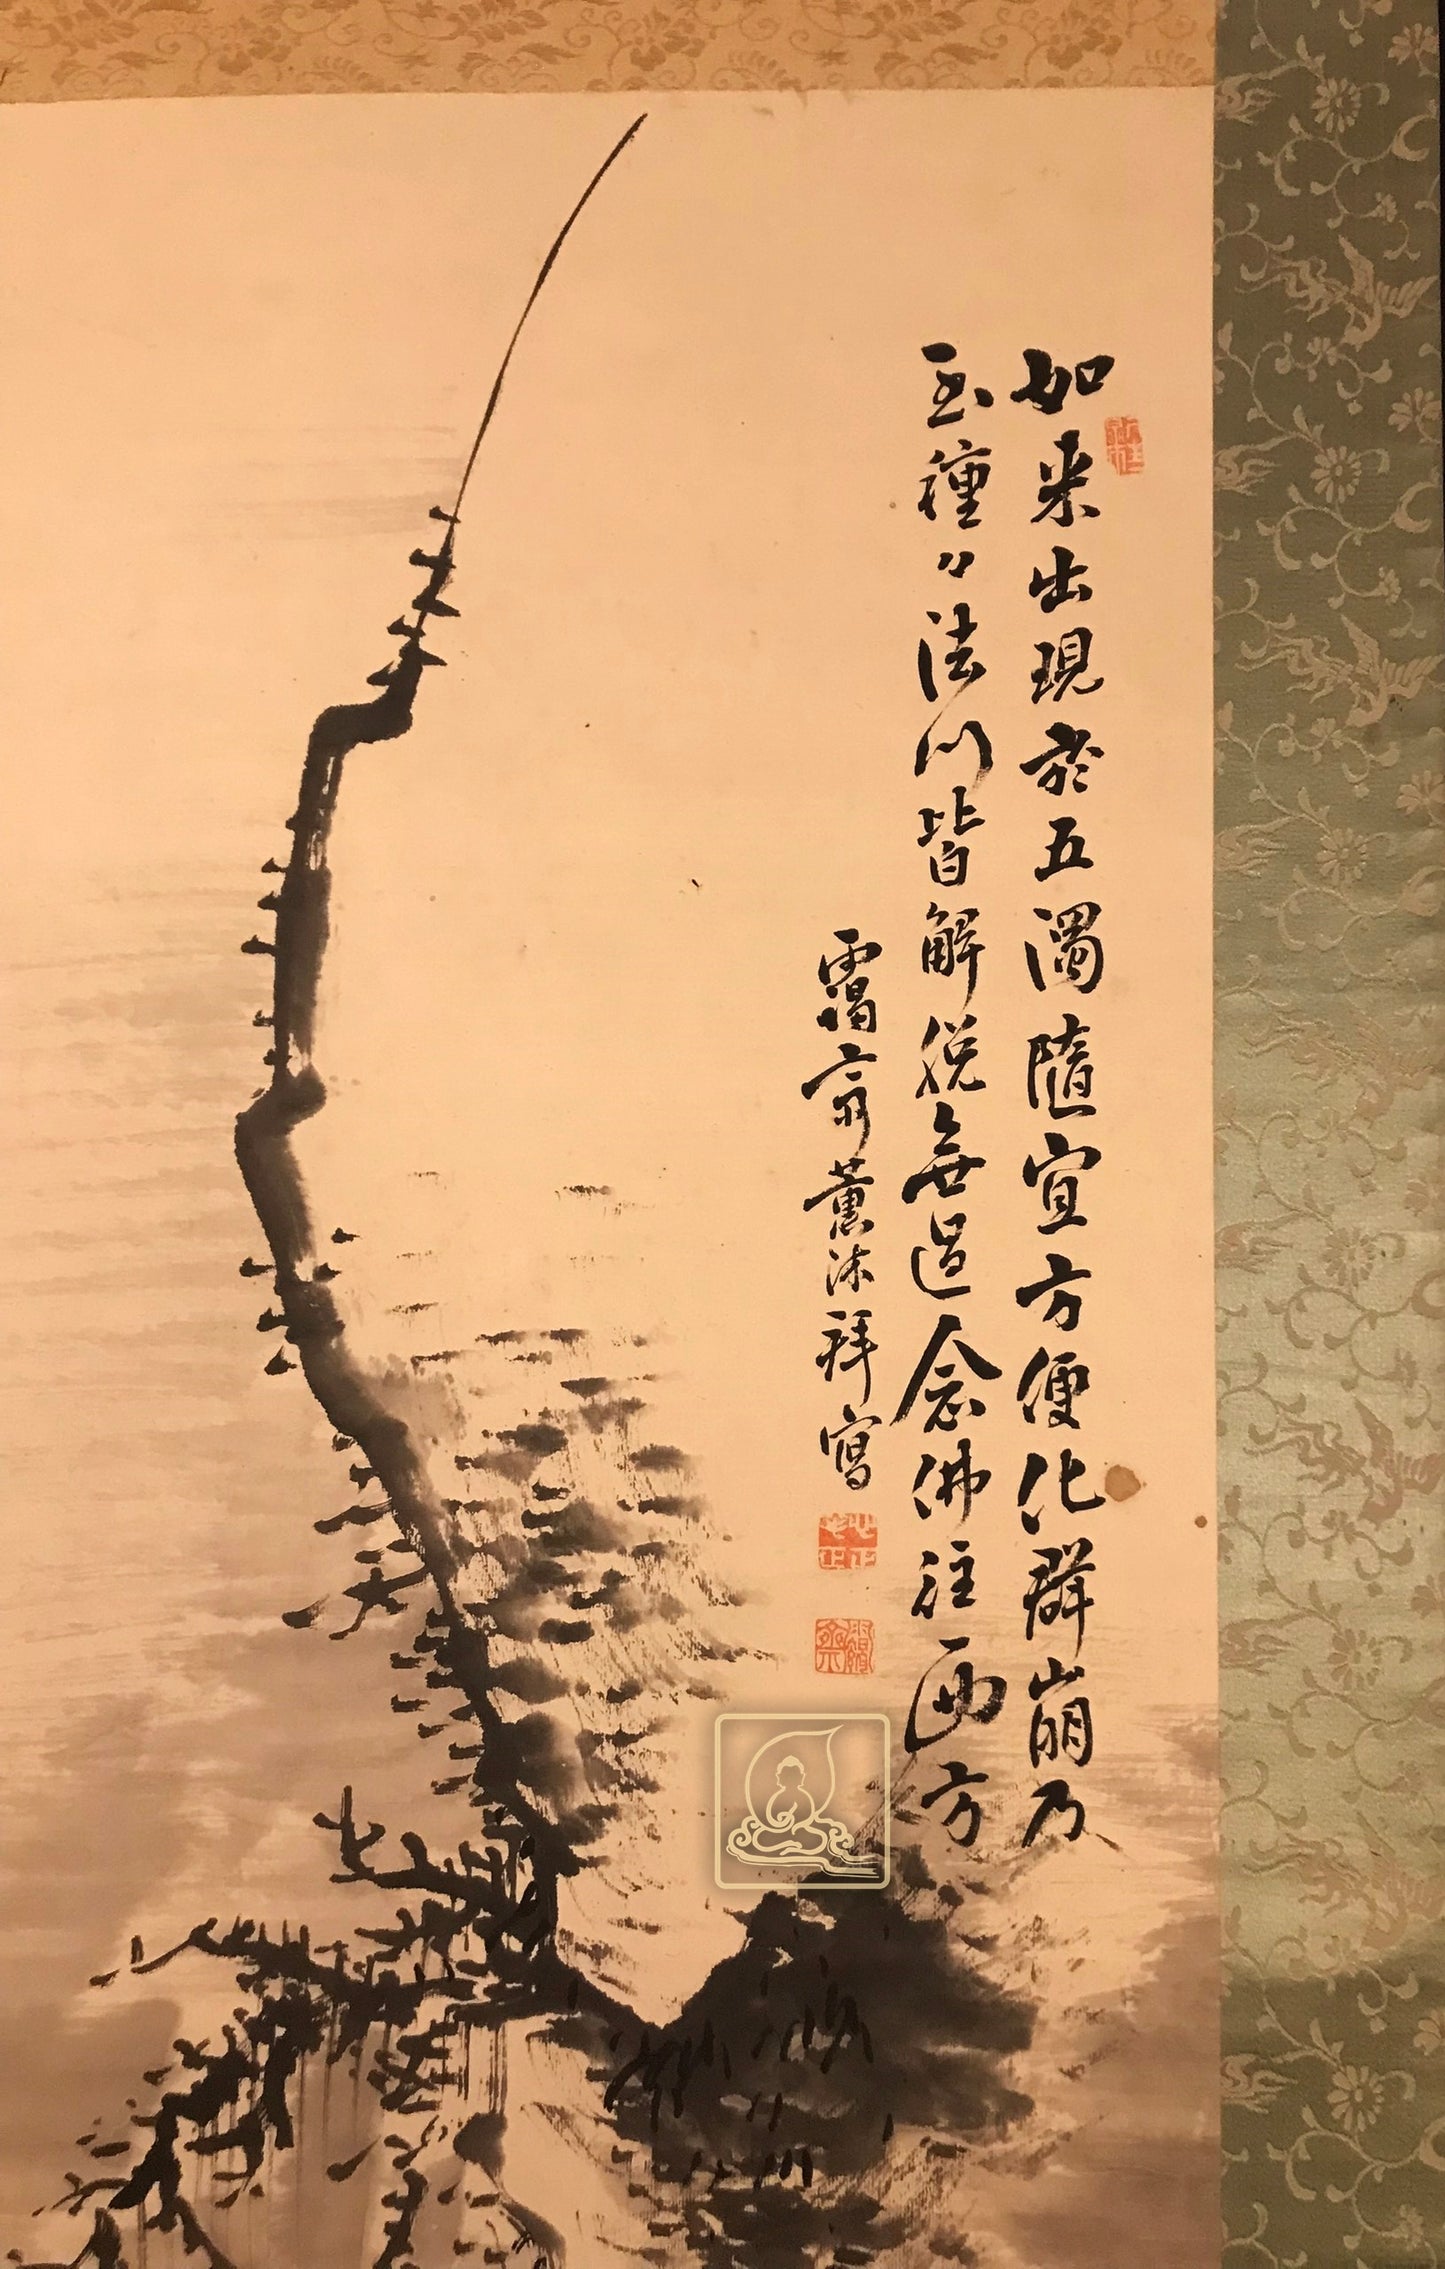 如来出現於五濁隨宜方便化群萌乃
至種々法門皆解脱無過念佛往西方
靄翁薫沐拜寫